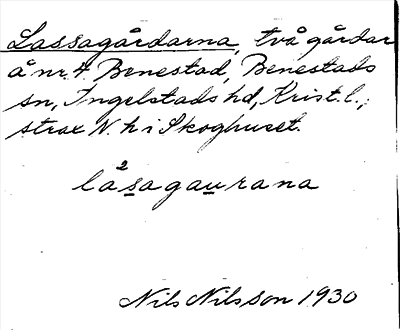 Lassagårdarna, två gårdar
å nr 4 Benestad, Benestads
sn, Ingelstads hd, Krist. l.,
strax N. h i Skoghuset.
2
låsagaurana
Nils Nilsson 1930